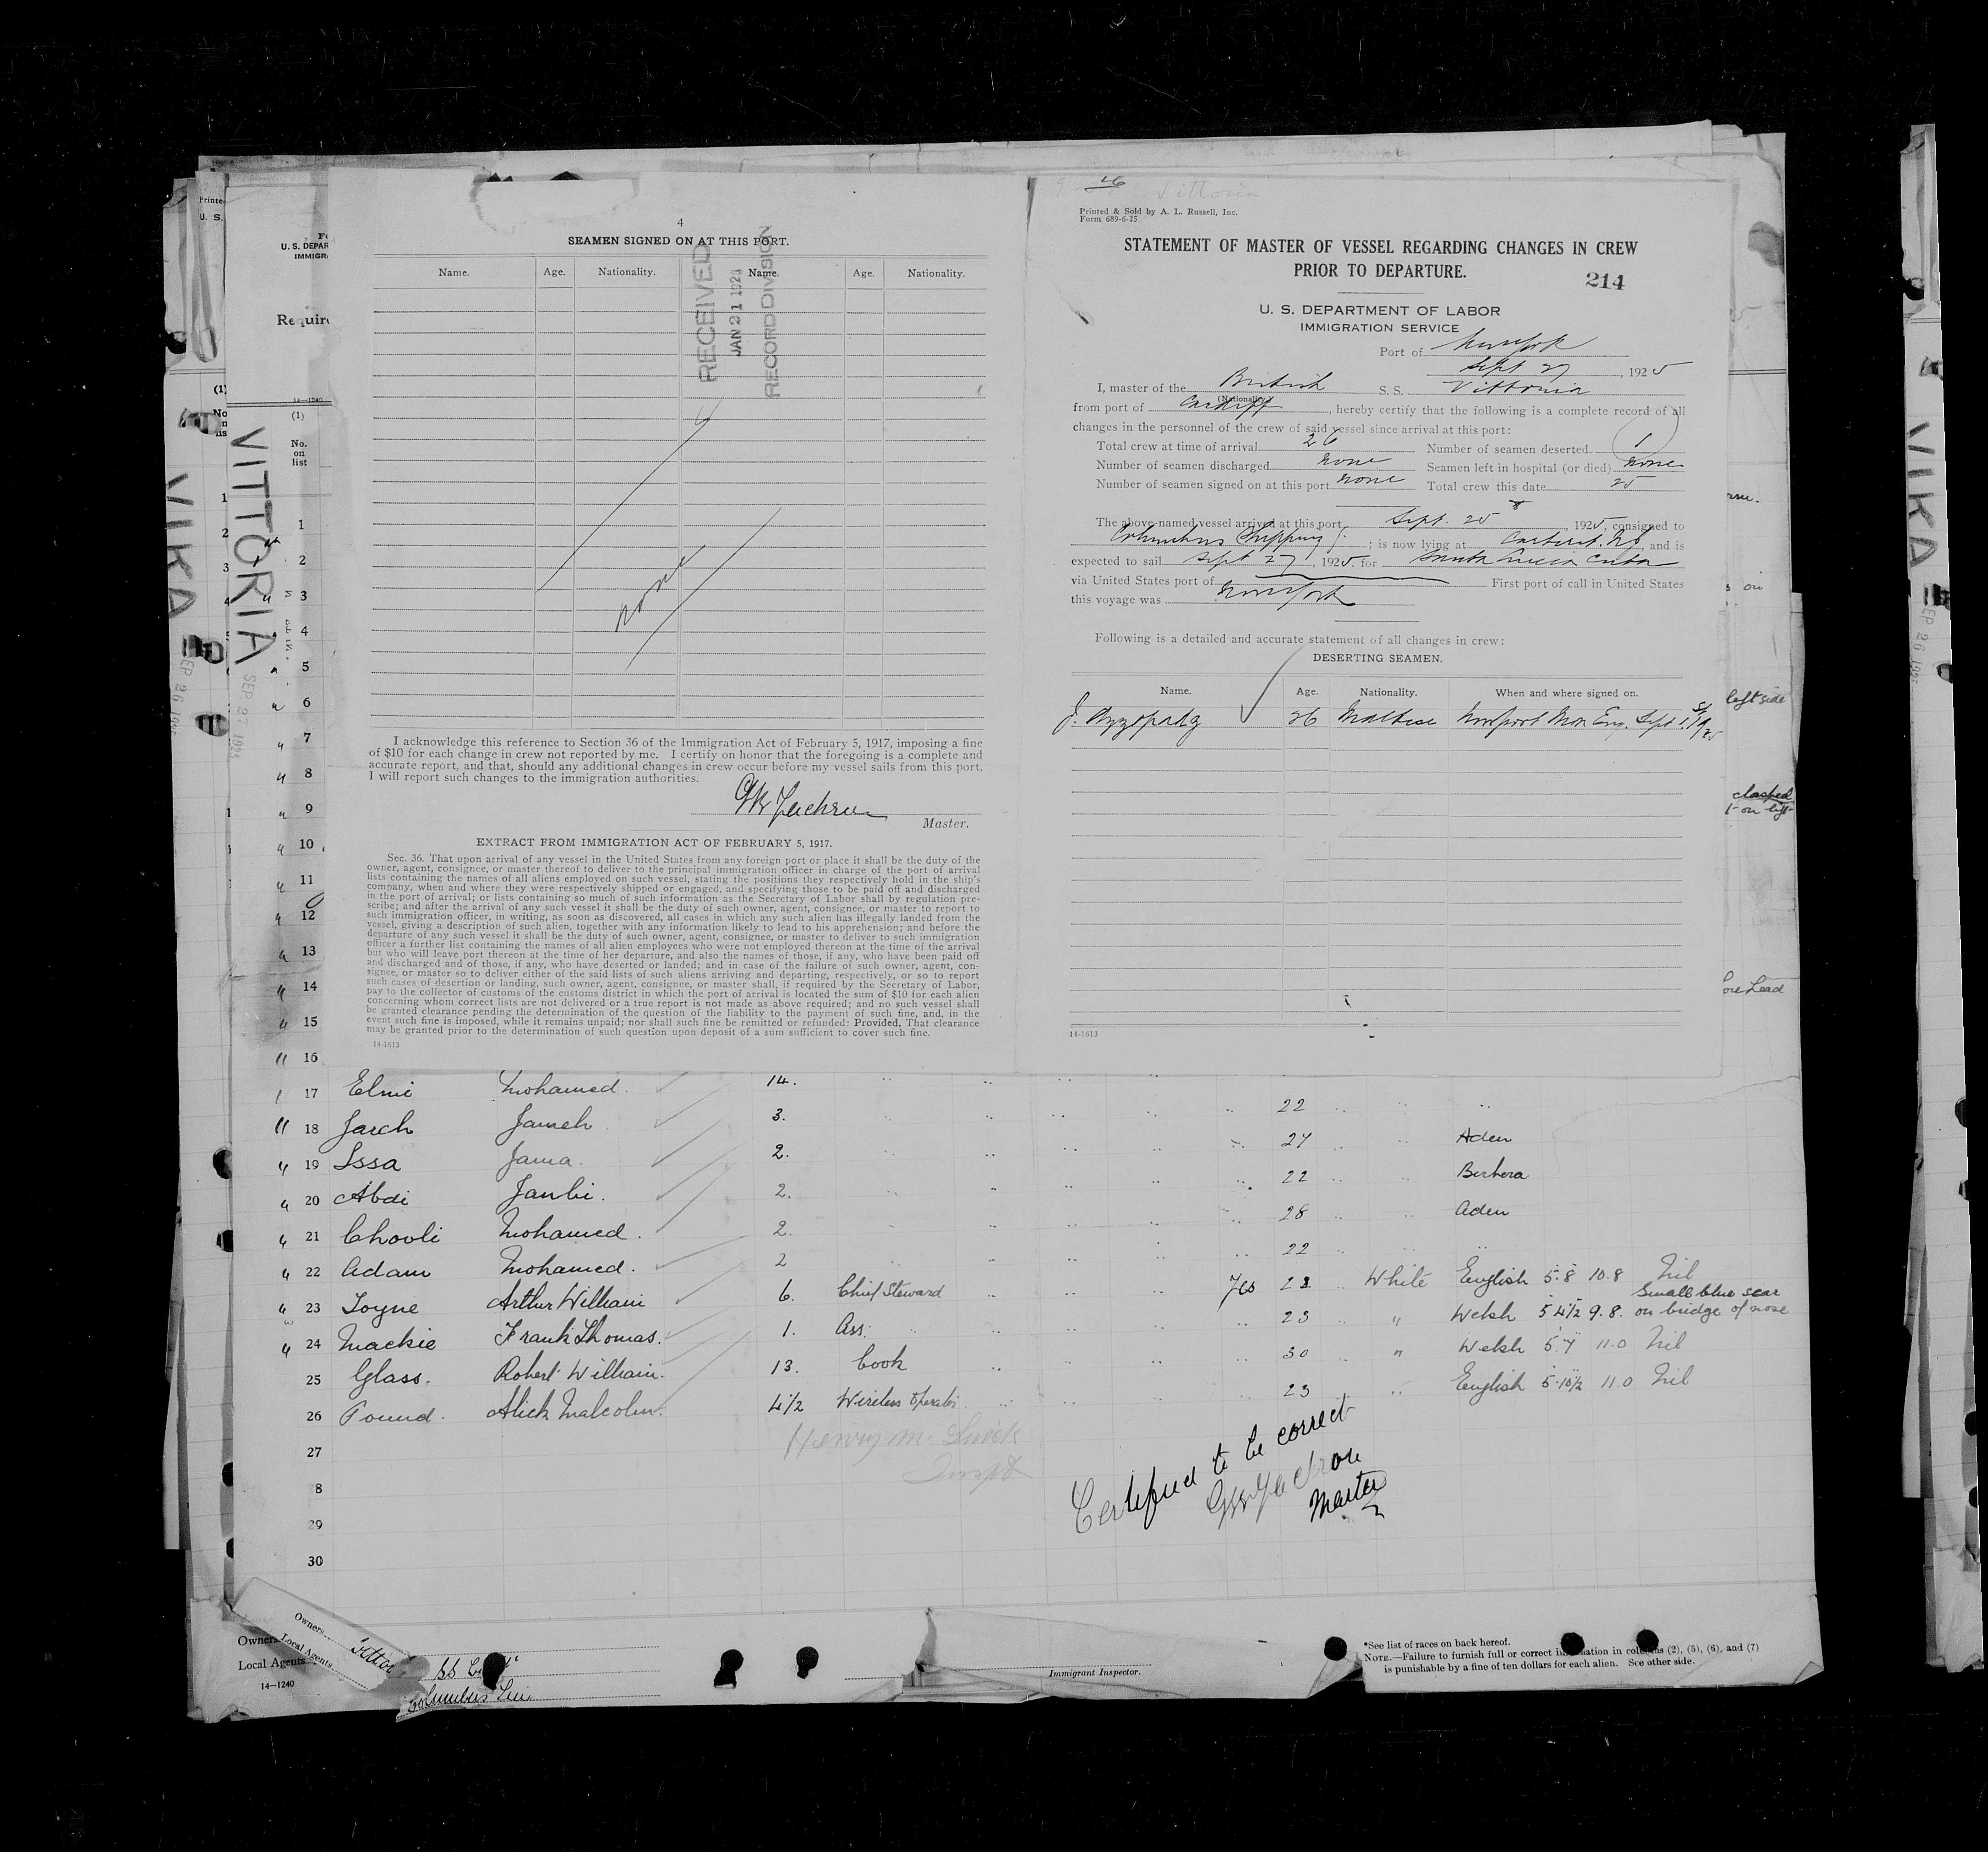 4
SEAMEN SIGNED ON AT THIS PORT.
Name. Age. Nationality. Name. Age. Nationality.
RECEIVED
JAN 21 192
RECORD DIVISION
none
I acknowledge this reference to Section 36 of the Immigration Act of February 5, 1917, imposing a fine
of $10 for each change in crew not reported by me. I certify on honor that the foregoing is a complete and
accurate report, and that, should any additional changes in crew occur before my vessel sails from this port,
I will report such changes to the immigration authorities.
Master.
EXTRACT FROM IMMIGRATION ACT OF FEBRUARY 5, 1917.
Sec. 36. That upon arrival of any vessel in the United States from any foreign port or place it shall be the duty of the
owner, agent, consignee, or master thereof to deliver to the principal immigration officer in charge of the port of arrival
lists containing the names of all aliens employed on such vessel, stating the positions they respectively hold in the ship's
company, when and where they were respectively shipped or engaged, and specifying those to be paid off and discharged
in the port of arrival; or lists containing so much of such information as the Secretary of Labor shall by regulation pre-
scribe; and after the arrival of any such vessel it shall be the duty of such owner, agent, consignee, or master to report to
such immigration officer, in writing, as soon as discovered, all cases in which any such alien has illegally landed from the
vessel, giving a description of such alien, together with any information likely to lead to his apprehension; and before the
departure of any such vessel it shall be the duty of such owner, agent, consignee, or master to deliver to such immigration
officer a further list containing the names of all alien employees who were not employed thereon at the time of the arrival
but who will leave port thereon at the time of her departure, and also the names of those, if any, who have been paid off
and discharged and of those, if any, who have deserted or landed; and in case of the failure of such owner, agent, con-
signee, or master so to deliver either of the said lists of such aliens arriving and departing, respectively, or so to report
such cases of desertion or landing, such owner, agent, consignee, or master shall, if required by the Secretary of Labor,
pay to the collector of customs of the customs district in which the port of arrival is located the sum of $10 for each alien
concerning whom correct lists are not delivered or a true report is not made as above required; and no such vessel shall
be granted clearance pending the determination of the question of the liability to the payment of such fine, and, in the
event such fine is imposed, while it remains unpaid; nor shall such fine be remitted or refunded: Provided, That clearance
may be granted prior to the determination of such question upon deposit of a sum sufficient to cover such fine.
14-1613
26 Vittoria
Printed & Sold by A. L. Russell, Inc.
Form 689-6-25
STATEMENT OF MASTER OF VESSEL REGARDING CHANGES IN CREW
PRIOR TO DEPARTURE.
214
U. S. DEPARTMENT OF LABOR
IMMIGRATION SERVICE
Port of New York
Sept 27, 1925
I, master of the British S. S. Vittoria
(Nationality)
from port of Cardiff, hereby certify that the following is a complete record of all
changes in the personnel of the crew of said vessel since arrival at this port:
Total crew at time of arrival 26 Number of seamen deserted 1
Number of seamen discharged none Seamen left in hospital (or died) none
Number of seamen signed on at this port none Total crew this date 25
The above-named vessel arrived at this port Sept. 25, 1925, consigned to
Columbus Shipping; is now lying at Carteret. NJ, and is
expected to sail Sept 27, 1925. for Santa Lucia Cuba
via United States port of First port of call in United States
this voyage was New York
Following is a detailed and accurate statement of all changes in crew:
DESERTING SEAMEN.
Name. Age. Nationality. When and where signed on.
J. 26 Maltese Newport Mon Eng. Sept
14-1613
VITTORIA
SEP 27 192
VIKA
SEP 26 19
U. S. DEPAR
IMMIGR
Require
14-1240
(1)
No.
on
list
1
2
3
4
5
6
7
8
9
10
11
12
13
14
15
16
17 Elmi Mohamed. 14. 22
18 Jarch Jameh 3. 27 Aden
19 Issa Jama. 2. 22 Berbera
20 Abdi Jambi. 2. 28 Aden
21 Chooli Mohamed. 2. 22
22 Adam Mohamed. 2
23 Toyne Arthur William 6. Chief Steward Yes 22 White English 5.8 10.8 Nil
24 Mackie Frank Thomas. 1. Ass. 23 Welsh 5 4½ 9.8. Small blue scar on bridge of nose
25 Glass. Robert William. 13. Cook 30 Welsh 5.7 11.0 Nil
26 Pound. Alick Malcolm. 4½ Wireless Operator 23 English 5.10½ 11.0 Nil
27
8
29
30
Certified to be correct
Master
left side
Owners
Local Agents
Columbus
14—1240
Immigrant Inspector.
*See list of races on back hereof.
NOTE.—Failure to furnish full or correct information in columns (2), (5), (6), and (7)
is punishable by a fine of ten dollars for each alien. See other side.
VIKA